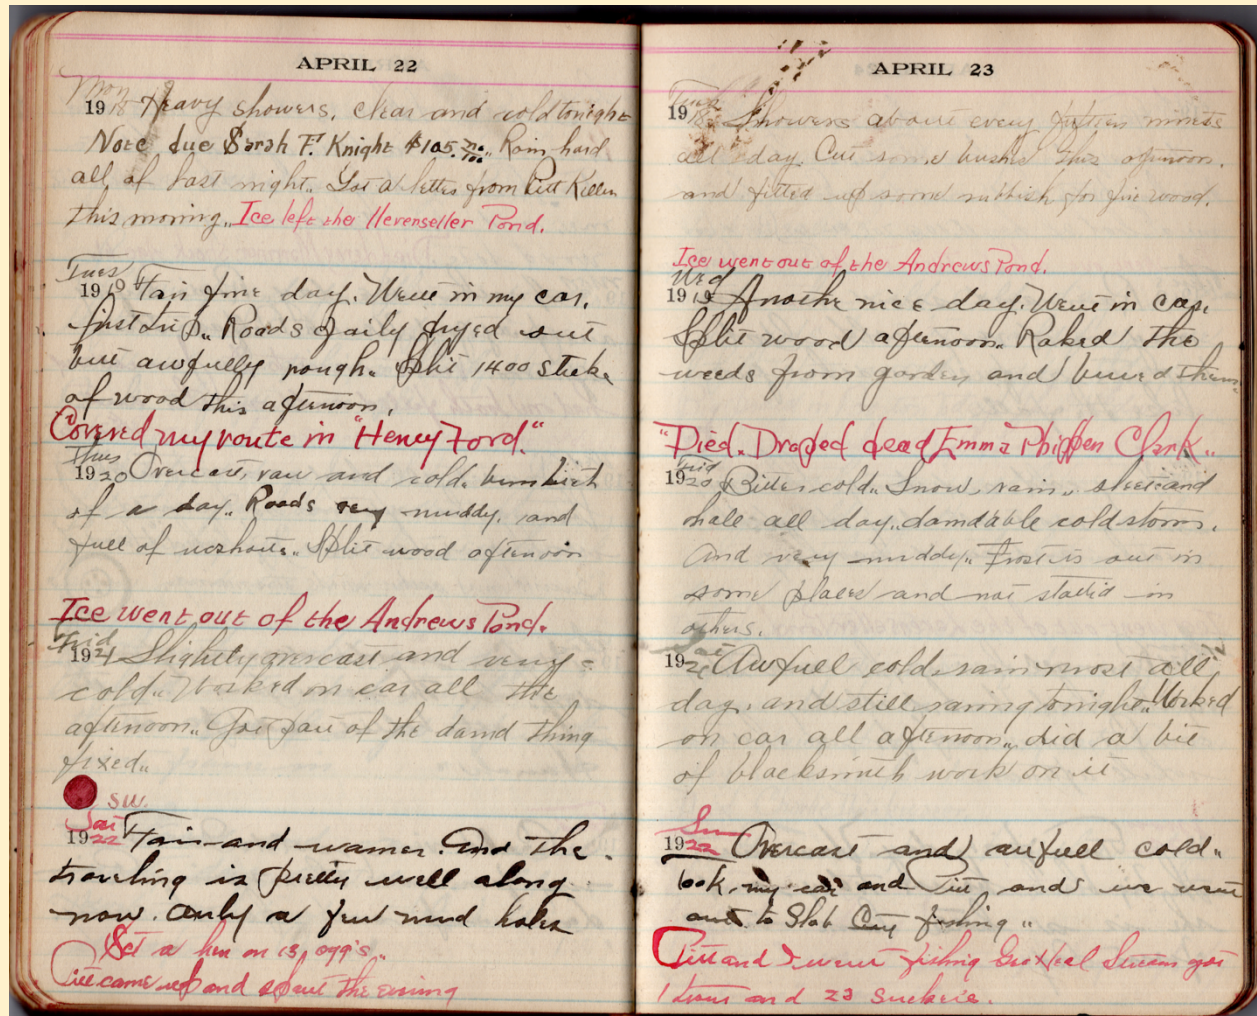 APRIL 22
Mon
1918 Heavy showers, clear and cold tonight
Note due Sarah F. Knight $105. no/100 " Rain hard
all of last night.. Got a letter from Pitt Killen
this morning.. Ice left the Levenseller Pond.
Tues
1919 Fair fine day. Went in my car,
first trip.. Roads dryed out
but awfully rough. Split 1400 sticks
of wood this afternoon.
Covered my route in "Henry Ford."
Thurs
1920 Overcast, raw and cold.
of a day.. Roads very muddy, and
full of washouts.. Split wood afternoon
Ice went out of the Andrews Pond.
Frid
1921 Slightly overcast and very
cold.. Worked on car all the
afternoon.. Got part of the damd thing
fixed..
SW.
Sat
1922 Fair and warmer. And the
traveling is pretty well along
now. Only a few mud holes
Set a hen on 13, ogg's..
Pitt came up and spent the evening
APRIL 23
Tues
1918 Showers about every fifteen minets
all day. Cut some bushes this afternoon.
and fitted up some rubbish for fire wood.
Ice went out of the Andrews Pond.
Wed
1919 Another nice day. Went in car.
Split wood afternoon.. Raked the
weeds from garden and burned them
"Died. Droped dead Emma Phippen Clark..
Frid
1920 Bitter cold.. Snow, rain, sleet and
hale all day.. damdable cold storm.
And very muddy.. Frost is out in
some places and not in
others.
Sat
1921 Awfull cold, rain most all
day, and still raning tonight.. Worked
on car all afternoon.. did a bit
of blacksmith work on it
Sun
1922 Overcast and awfull cold..
took my car and Pitt and we went
out to Slab City fishing..
Pitt and I went fishing Stream got
1 trout and 23 suckers.